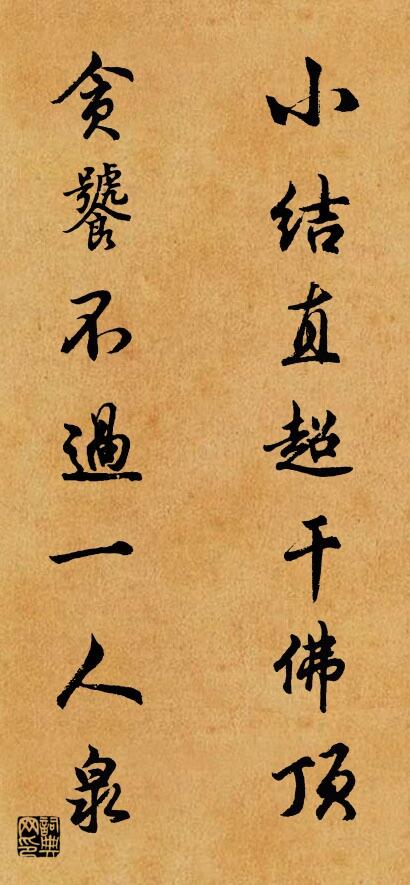 小结直超千佛顶
贪饕不過一人泉
词典网印